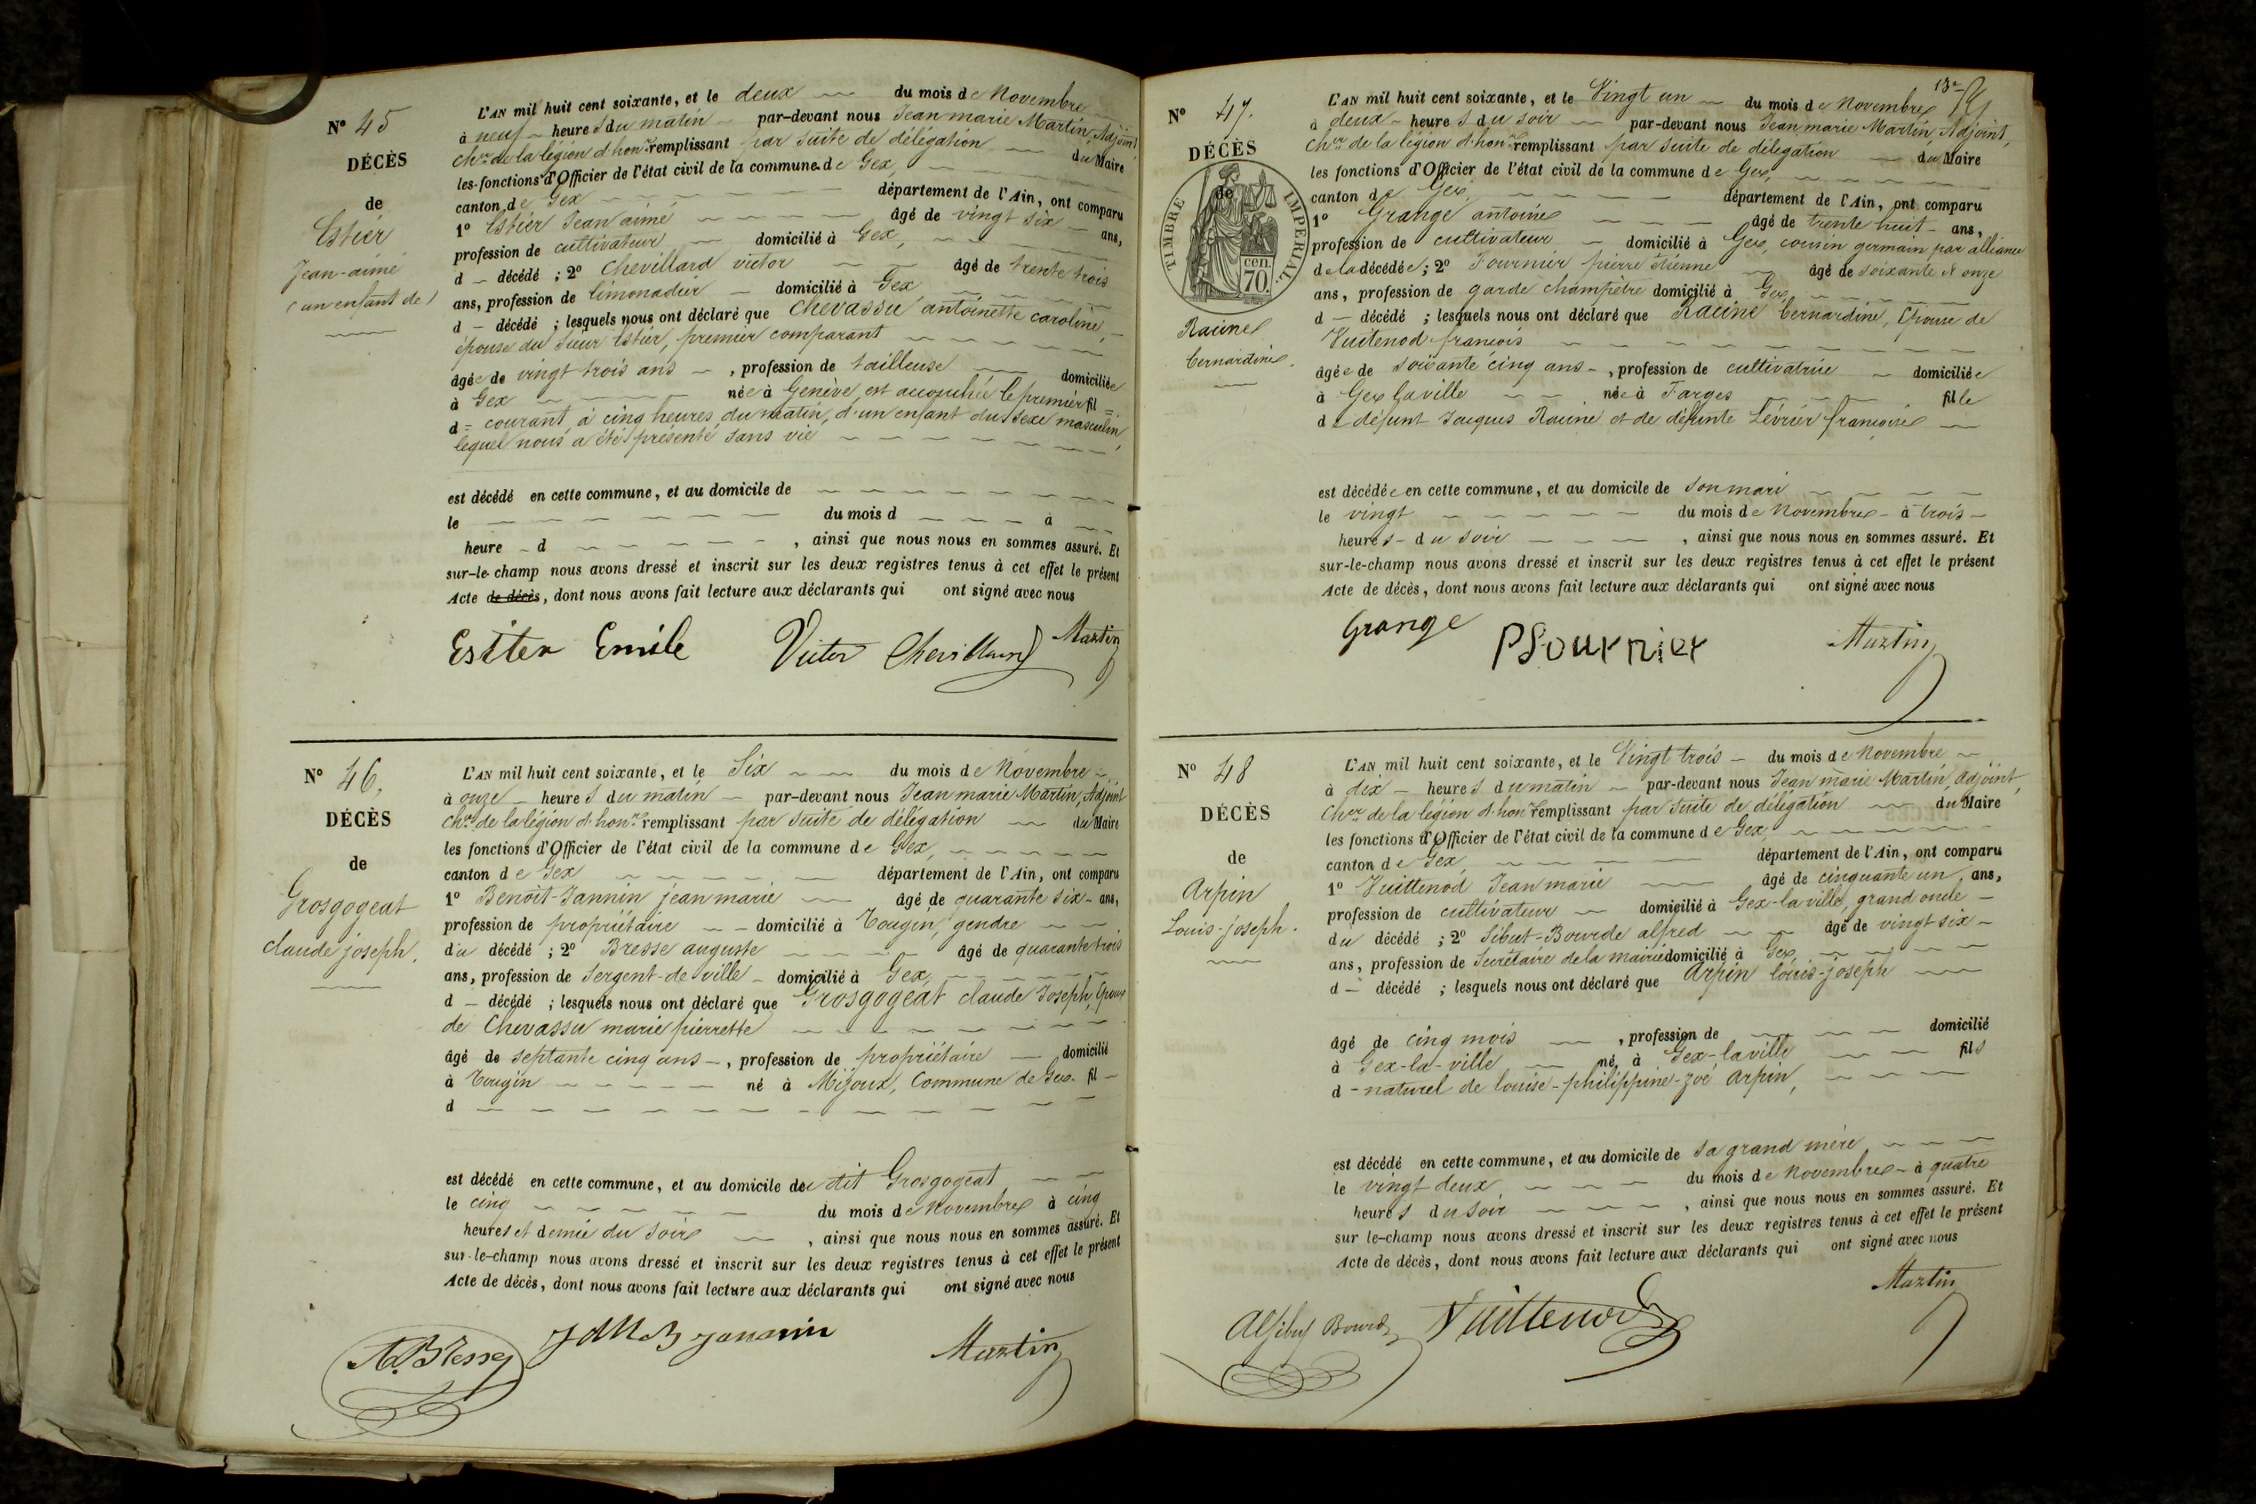 N° 45
DÉCÈS
de
Estier
Jean-aimé
(un enfant de)
L'AN mil huit cent soixante, et le deux du mois de Novembre
à neuf heures du matin par-devant nous Jean marie Martin, Adjoint
Chr de la légion d'honr remplissant par suite de délégation du Maire
les fonctions d'Officier de l'état civil de la commune de Gex,
canton de Gex département de l'Ain, ont comparu
1° Estier Jean aimé âgé de vingt six ans,
profession de cultivateur domicilié à Gex,
d décédé ; 2° Chevillard victor âgé de trente trois
ans, profession de limonadier domicilié à Gex
d décédé ; lesquels nous ont déclaré que Chevassu antoinette caroline,
épouse du sieur Estier, premier comparant
âgée de vingt trois ans, profession de tailleuse domiciliée
à Gex née à Genève est accouchée le premier fil
d courant, à cinq heures du matin, d'un enfant du sexe masculin,
lequel nous a été présenté sans vie
est décédé en cette commune, et au domicile de
le du mois d à
heure d , ainsi que nous nous en sommes assuré. Et
sur-le-champ nous avons dressé et inscrit sur les deux registres tenus à cet effet le présent
Acte de décès, dont nous avons fait lecture aux déclarants qui ont signé avec nous
Estier Emile Victor Chevillard Martin
N° 46.
DÉCÈS
de
Grosgogeat
claude joseph.
L'AN mil huit cent soixante, et le Six du mois de Novembre
à onze heures du matin par-devant nous Jean marie Martin, Adjoint
Chr de la légion d'honr remplissant par suite de délégation du Maire
les fonctions d'Officier de l'état civil de la commune de Gex,
canton de Gex département de l'Ain, ont comparu
1° Benoit-Jannin jean marie âgé de quarante six ans,
profession de propriétaire domicilié à Tougin, gendre
du décédé ; 2° Bresse auguste âgé de quarante trois
ans, profession de Sergent-de-ville domicilié à Gex,
d décédé ; lesquels nous ont déclaré que Grosgogeat claude Joseph, Epoux
de Chevassu marie pierrette
âgé de septante cinq ans, profession de propriétaire domicilié
à Tougin né à Mijoux, Commune de Gex. fil
d
est décédé en cette commune, et au domicile de dit Grosgogeat
le cinq du mois de Novembre à cinq
heures et demie du soir , ainsi que nous nous en sommes assuré. Et
sur-le-champ nous avons dressé et inscrit sur les deux registres tenus à cet effet le présent
Acte de décès, dont nous avons fait lecture aux déclarants qui ont signé avec nous
A. Bresse JMB janinin Martin
N° 47.
DÉCÈS
de
TIMBRE IMPÉRIAL.
cen.
70.
Racine
bernardine.
L'AN mil huit cent soixante, et le Vingt un du mois de Novembre
à deux heures du soir par-devant nous Jean marie Martin, Adjoint,
Chr de la légion d'honr remplissant par suite de délégation du Maire
les fonctions d'Officier de l'état civil de la commune de Gex,
canton de Gex, département de l'Ain, ont comparu
1° Grange antoine âgé de trente huit ans,
profession de cultivateur domicilié à Gex, cousin germain par alliance
de la décédée ; 2° Fournier pierre étienne âgé de soixante et onze
ans, profession de garde champêtre domicilié à Gex,
d décédé ; lesquels nous ont déclaré que Racine bernardine, Epouse de
Vuitenod françois
âgée de soixante cinq ans, profession de cultivatrice domiciliée
à Gex la ville née à Farges fille
de défunt Jacques Racine et de défunte Lévrier françoise
est décédée en cette commune, et au domicile de son mari
le vingt du mois de Novembre à trois
heures du soir , ainsi que nous nous en sommes assuré. Et
sur-le-champ nous avons dressé et inscrit sur les deux registres tenus à cet effet le présent
Acte de décès, dont nous avons fait lecture aux déclarants qui ont signé avec nous
Grange PFournier Martin
N° 48
DÉCÈS
de
Arpin
Louis-joseph.
L'AN mil huit cent soixante, et le Vingt trois du mois de Novembre
à dix heures du matin par-devant nous Jean marie Martin, adjoint,
Chr de la légion d'honr remplissant par suite de délégation du Maire
les fonctions d'Officier de l'état civil de la commune de Gex,
canton de Gex département de l'Ain, ont comparu
1° Vuittenod Jean marie âgé de cinquante un, ans,
profession de cultivateur domicilié à Gex-la ville, grand oncle
du décédé ; 2° Sibut-Bourde alfred âgé de vingt six
ans, profession de Secrétaire de la mairie domicilié à Gex,
d décédé ; lesquels nous ont déclaré que Arpin louis-joseph
âgé de cinq mois , profession de domicilié
à Gex-la-ville né, à Gex-la ville fils
d naturel de louise-philippine-zoé Arpin,
est décédé en cette commune, et au domicile de sa grand mère
le vingt deux du mois de Novembre à quatre
heures du soir , ainsi que nous nous en sommes assuré. Et
sur le-champ nous avons dressé et inscrit sur les deux registres tenus à cet effet le présent
Acte de décès, dont nous avons fait lecture aux déclarants qui ont signé avec nous
A Sibut Bourde Vuittenod Martin